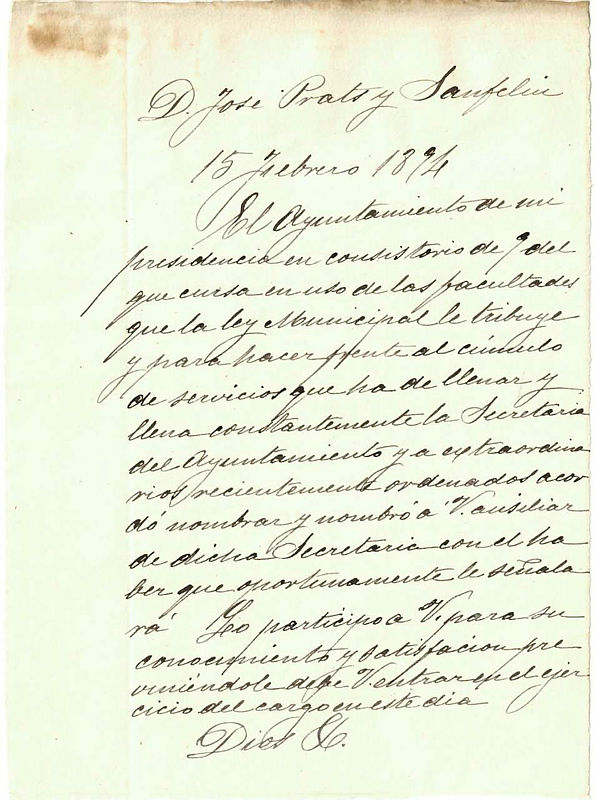 D. José Prats y Sanfeliu
15 Febrero 1894
El Ayuntamiento de mi
presidencia en consistorio de 9 del
que cursa en uso de las facultades
que la ley Municipal le tribuye
y para hacer frente al cúmulo
de servicios que ha de llenar y
llena constantemente la Secretaria
del Ayuntamiento y a extraordina
rios recientemente ordenados acor
dó nombrar y nombró a V. ausiliar
de dicha Secretaria con el ha
ber que oportunamente le señala
rá Lo participo a V. para su
conocimiento y satisfacion pre
viniéndole debe V. entrar en el ejer
cicio del cargo en este dia
Dios &.